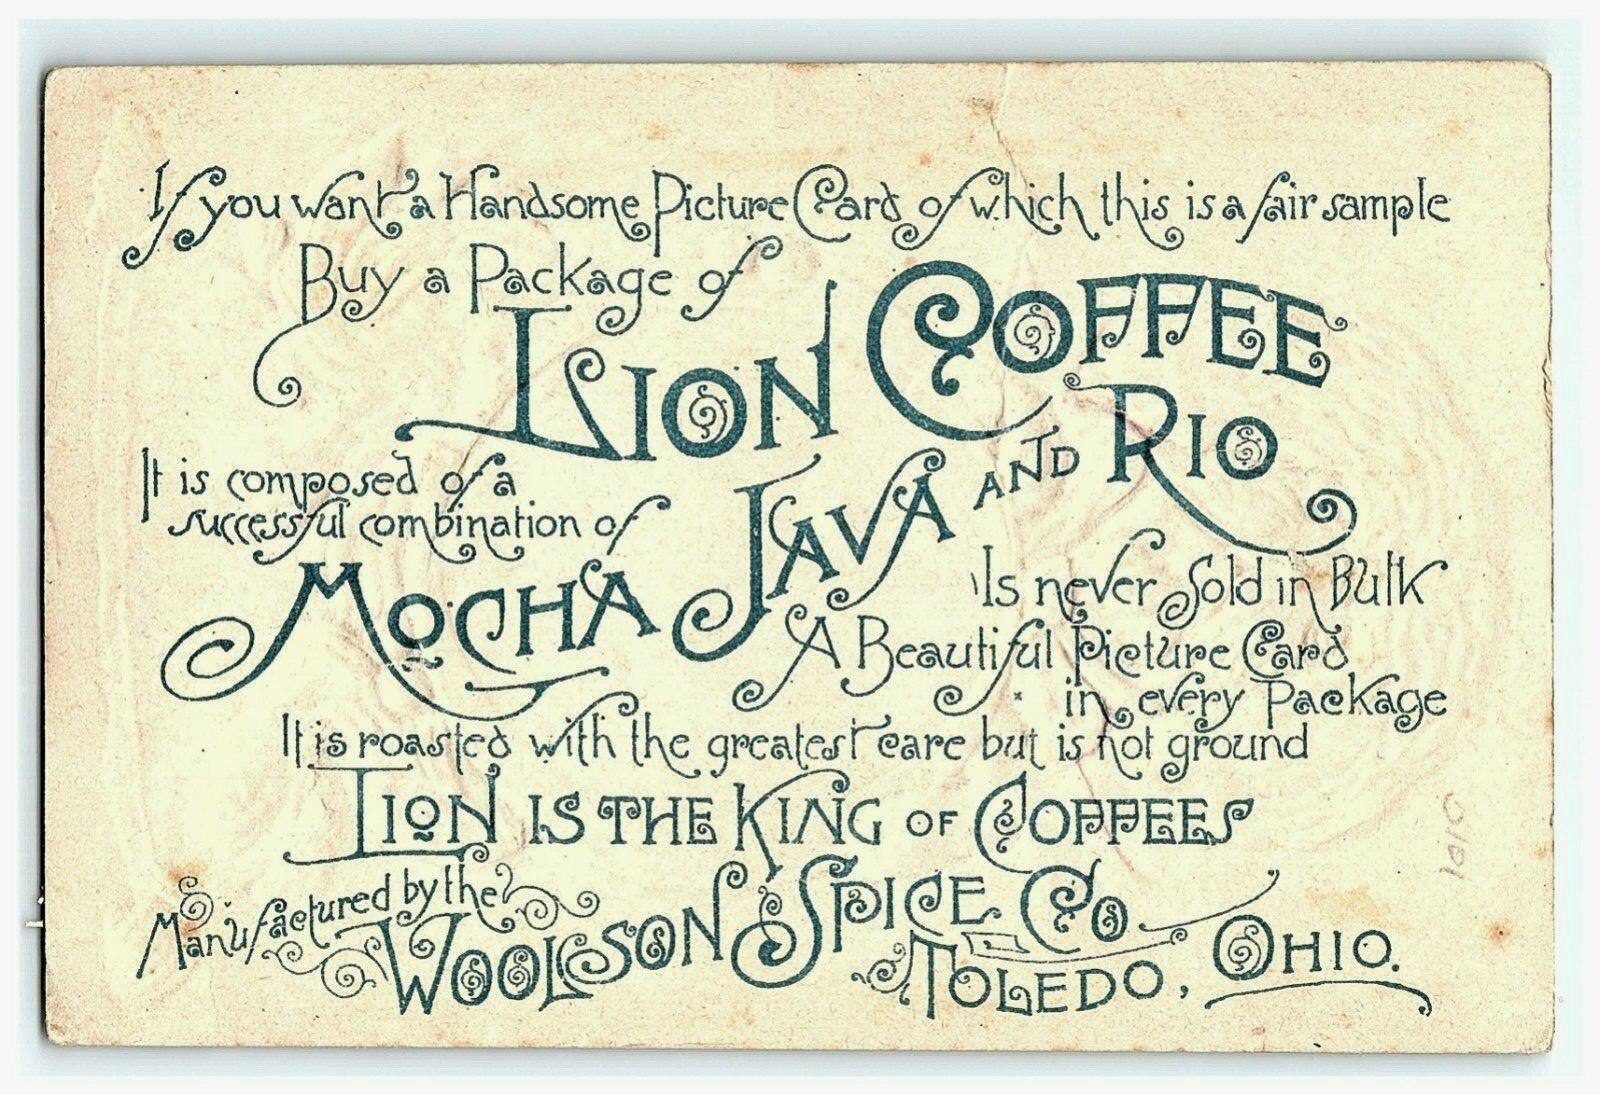 If you want a Handsome Picture Card of which this is a fair sample
Buy a Package of
LION COFFEE
It is composed of a
successful combination of
MOCHA JAVA AND RIO
Is never Sold in Bulk
A Beautiful Picture Card
in every Package
It is roasted with the greatest care but is not ground
LION IS THE KING OF COFFEES
Manufactured by the
WOOLSON SPICE CO.
TOLEDO, OHIO.